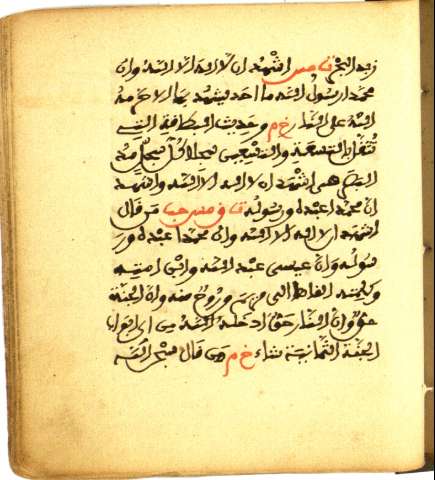 زبد البحر مس اشهد ان لا اله الا الله وان
محمدا رسول الله ما احد يشهد بها الا حرمه
الله على النار خ م وحديث البطاقة التي
تثقل بالتسعة والتسعين سجلا كل سجل مد
البصر هي اشهد ان لا اله الا الله واشهد
ان محمدا عبده ورسوله ق مس حب من قال
اشهد ان لا اله الا الله وان محمدا عبده ور
سوله وان عيسى عبد الله وابن امته
وكلمته القاها الى مريم وروح منه وان الجنة
حق وان النار حق ادخله الله من اي ابواب
الجنة الثمانية شاء خ م ومن قال سبحن الله